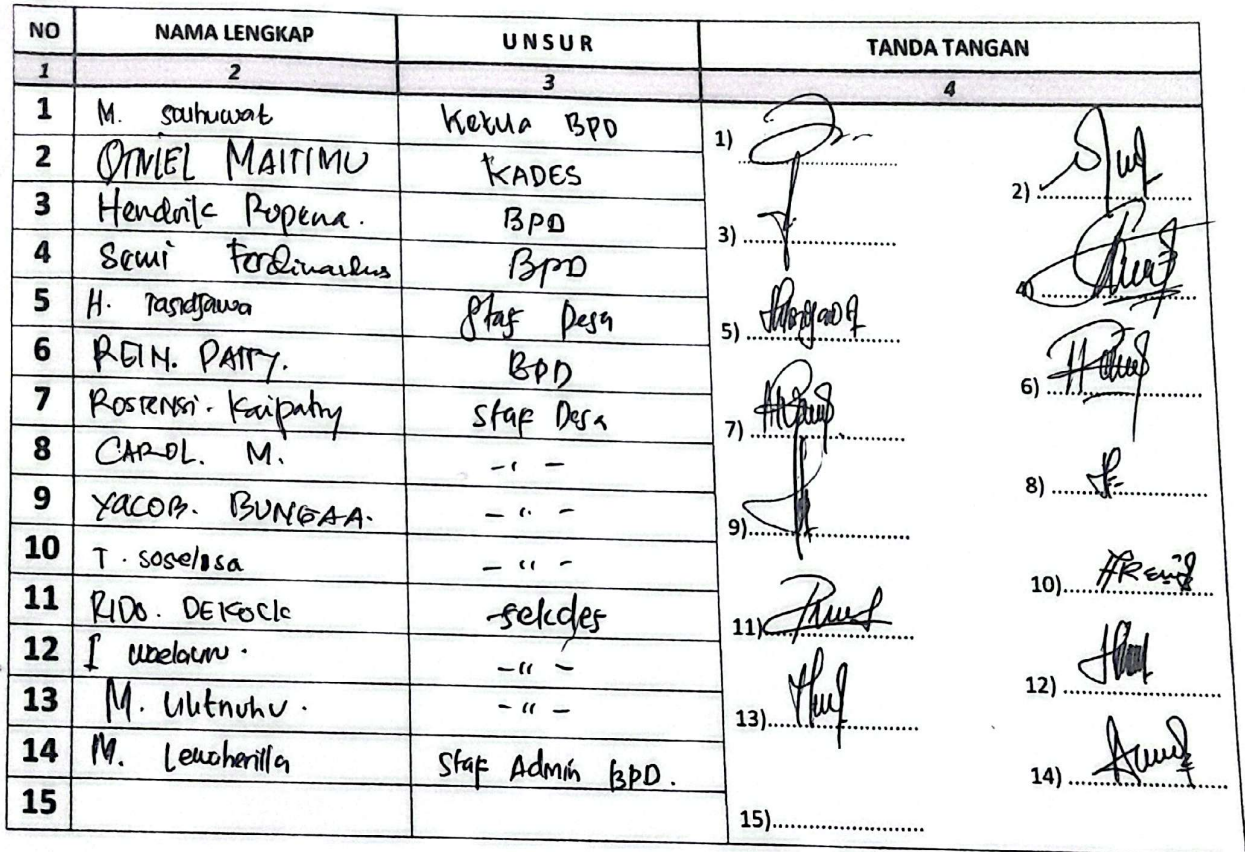 NO NAMA LENGKAP UNSUR TANDA TANGAN
1 2 3 4
1 M. souhuwat Ketua BPD 1)
2 OTNIEL MAITIMU KADES 2)
3 Hendrik Ropena. BPD 3)
4 Semi Ferdinandus BPD 4)
5 H. Tasidjawa Staf Desa 5)
6 REIN. PATTY. BPD 6)
7 ROSTENSI. Kaipatty Staf Desa 7)
8 CAROL. M. -"- 8)
9 YACOB. BUNGAA. -"- 9)
10 T. soselisa -"- 10)
11 RIDO. DEKOCK sekdes 11)
12 I -"- 12)
13 M. -"- 13)
14 M. Lewaherilla Staf Admin BPD. 14)
15 15)